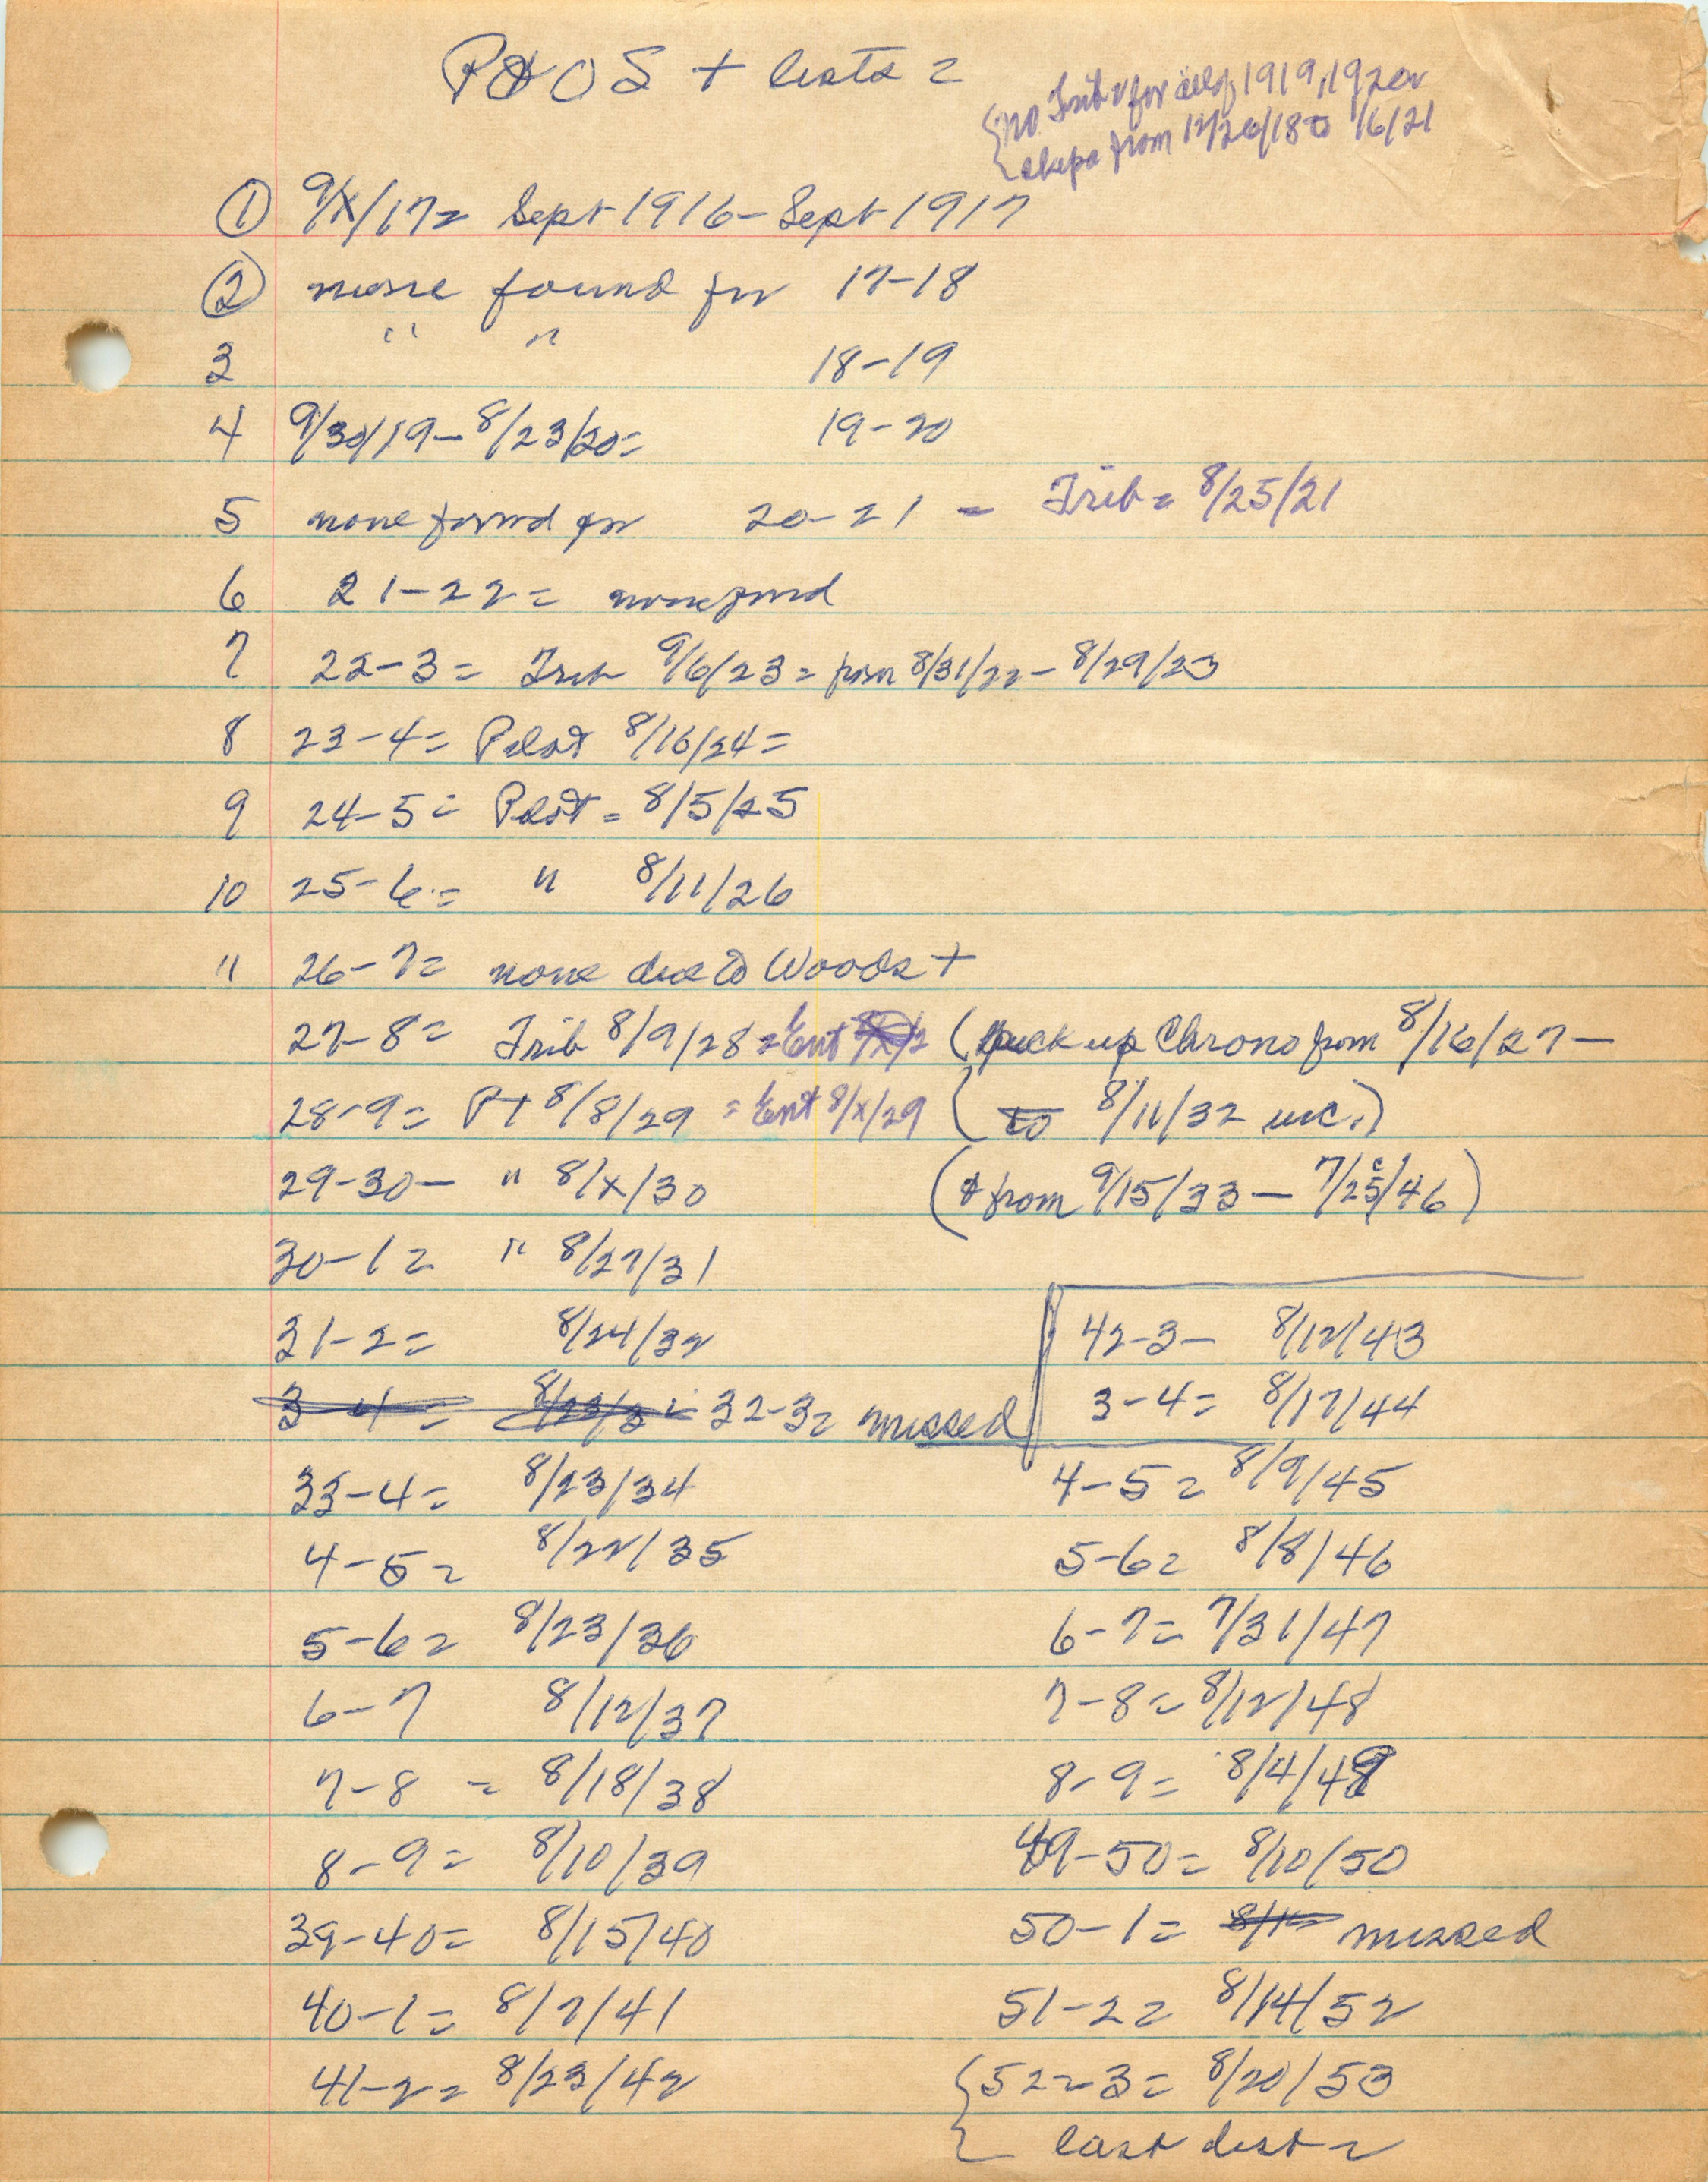 POOS + lists =
{no Trib for all of 1919, 1920 or
{skips from 12/26/18 to 1/6/21
① 9/X/17 = Sept 1916 - Sept 1917
② none found for 17-18
3 " " 18-19
4 9/30/19 - 8/23/20 = 19-20
5 none found for 20-21 - Trib = 8/25/21
6 21-22 = none found
7 22-3 = Trib 9/6/23 = from 8/31/22 - 8/29/23
8 23-4 = Pilot 8/16/24 =
9 24-5 = Pilot = 8/5/25
10 25-6 = " 8/11/26
11 26-7 = none due to Woods +
27-8 = Trib 8/9/28 = Ent (pick up Chrono from 8/16/27 -
28-9 = Pt 8/8/29 = Ent 8/X/29 ( to 8/11/32 inc.)
29-30 - " 8/X/30 (& from 9/15/33 - 7/25/46)
30-1 = " 8/27/31
31-2 = 8/24/32
3-4 = 8/23/3 32-3 = missed
33-4 = 8/23/34
4-5 = 8/22/35
5-6 = 8/23/36
6-7 8/12/37
7-8 = 8/18/38
8-9 = 8/10/39
39-40 = 8/15/40
40-1 = 8/7/41
41-2 = 8/23/42
42-3 - 8/12/43
3-4 = 8/17/44
4-5 = 8/9/45
5-6 = 8/8/46
6-7 = 7/31/47
7-8 = 8/12/48
8-9 = 8/4/49
49-50 = 8/10/50
50-1 = missed
51-2 = 8/14/52
{52-3 = 8/20/53
{ last list =